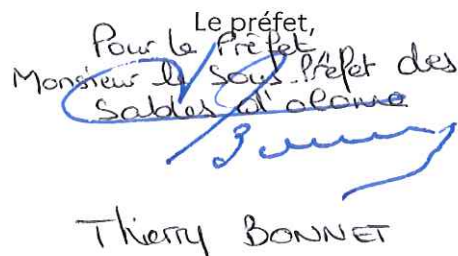 Le préfet,
Pour le Préfet,
Monsieur le Sous Préfet des
Sables d'olonne
Thierry BONNET